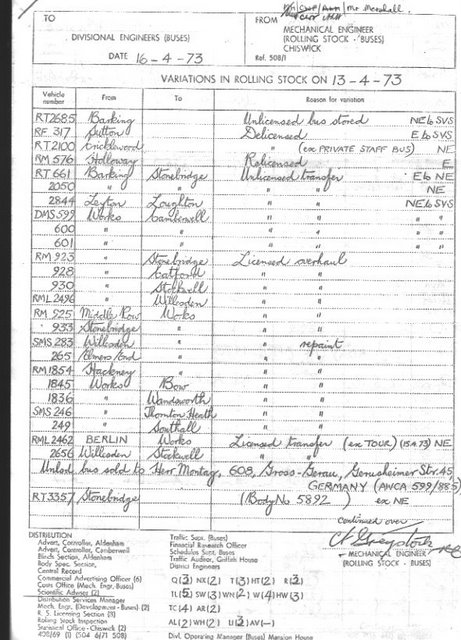 Mr. Marshall
TO
DIVISIONAL ENGINEERS (BUSES)
DATE 16-4-73
FROM
MECHANICAL ENGINEER
(ROLLING STOCK - BUSES)
CHISWICK
Ref. 508/1
VARIATIONS IN ROLLING STOCK ON 13-4-73
Vehicle number From To Reason for variation
RT2685 Barking Unlicensed bus stored NE to SVS
RF 317 Sutton Delicensed E to SVS
RT2100 Cricklewood " (ex PRIVATE STAFF BUS) NE
RM 576 Holloway Relicensed E
RT 661 Barking Stonebridge Unlicensed transfer E to NE
2050 " " " " NE
2844 Leyton Loughton " " NE to SVS
DMS 599 Works Camberwell " " " "
600 " " " " " "
601 " " " " " "
RM 923 " Stonebridge Licensed overhaul
928 " Catford " "
930 " Stockwell " "
RML 2496 " Willesden " "
RM 525 Middle Row Works " "
933 Stonebridge " " "
SMS 283 Willesden " " repaint
265 Elmers End " " "
RM1854 Hackney " " "
1845 Works Bow " "
1836 " Wandsworth " "
SMS 246 " Thornton Heath " "
249 " Southall " "
RML 2462 BERLIN Works Licensed transfer (ex TOUR) (15.4.73) NE
2656 Willesden Stockwell " "
Unlcd bus sold to Herr Montag, 608, Gross-Gerau, Str. 45
GERMANY (AWCA 599/885)
RT3357 Stonebridge (Body No 5892) ex NE
continued over
MECHANICAL ENGINEER
(ROLLING STOCK - BUSES)
DISTRIBUTION
Advert, Controller, Aldenham
Advert, Controller, Camberwell
Blinds Section, Aldenham
Body Spec. Section,
Central Record
Commercial Advertising Officer (6)
Costs Office (Mech. Engr. Buses)
Scientific Adviser (2)
Distribution Services Manager
Mech. Engr. (Development - Buses) (2)
R. S. Licensing Section (3)
Rolling Stock Inspection
Statistical Office - Chiswick (2)
408/69 (1) (504 6/71 508)
Traffic Supt. (Buses)
Financial Research Officer
Schedules Supt. Buses
Traffic Auditor, Griffith House
District Engineers
Q (3) NX (2) T (3) HT (2) R (3)
TL (5) SW (3) WN (2) W (4) HW (3)
TC (4) AR (2)
AL (2) WH (2) U (3) AV (-)
Divl. Operating Manager (Buses) Mansion House